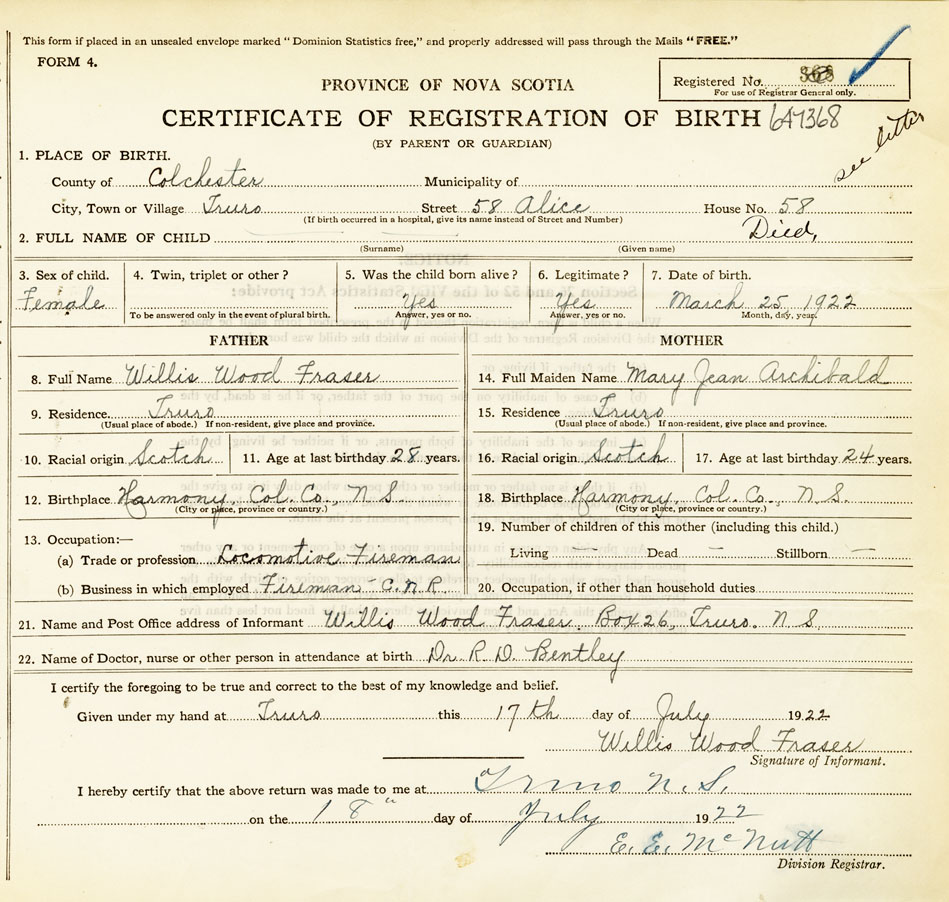 This form if placed in an unsealed envelope marked "Dominion Statistics free," and properly addressed will pass through the Mails "FREE."
FORM 4.
PROVINCE OF NOVA SCOTIA
Registered No.
For use of Registrar General only.
CERTIFICATE OF REGISTRATION OF BIRTH 647368
(BY PARENT OR GUARDIAN)
see letter
1. PLACE OF BIRTH.
County of Colchester Municipality of
City, Town or Village Truro Street 58 Alice House No. 58
(If birth occurred in a hospital, give its name instead of Street and Number)
2. FULL NAME OF CHILD Died,
(Surname) (Given name)
3. Sex of child. 4. Twin, triplet or other? 5. Was the child born alive? 6. Legitimate? 7. Date of birth.
Female Yes Yes March 25, 1922
To be answered only in the event of plural birth. Answer, yes or no. Answer, yes or no. Month, day, year.
FATHER MOTHER
8. Full Name Willis Wood Fraser 14. Full Maiden Name Mary Jean Archibald
9. Residence Truro 15. Residence Truro
(Usual place of abode.) If non-resident, give place and province. (Usual place of abode.) If non-resident, give place and province.
10. Racial origin Scotch 11. Age at last birthday 28 years. 16. Racial origin Scotch 17. Age at last birthday 24 years.
12. Birthplace Harmony, Col. Co., N S. 18. Birthplace Harmony, Col. Co., N S.
(City or place, province or country.) (City or place, province or country.)
13. Occupation:— 19. Number of children of this mother (including this child.)
(a) Trade or profession Locomotive Fireman Living — Dead — Stillborn —
(b) Business in which employed Fireman - C.N.R. 20. Occupation, if other than household duties
21. Name and Post Office address of Informant Willis Wood Fraser. Box 26, Truro. N S.
22. Name of Doctor, nurse or other person in attendance at birth Dr R. D. Bentley
I certify the foregoing to be true and correct to the best of my knowledge and belief.
Given under my hand at Truro this 17th day of July 1922
Willis Wood Fraser
Signature of Informant.
I hereby certify that the above return was made to me at Truro N. S.
on the 18" day of July 1922
E. E. McNutt
Division Registrar.